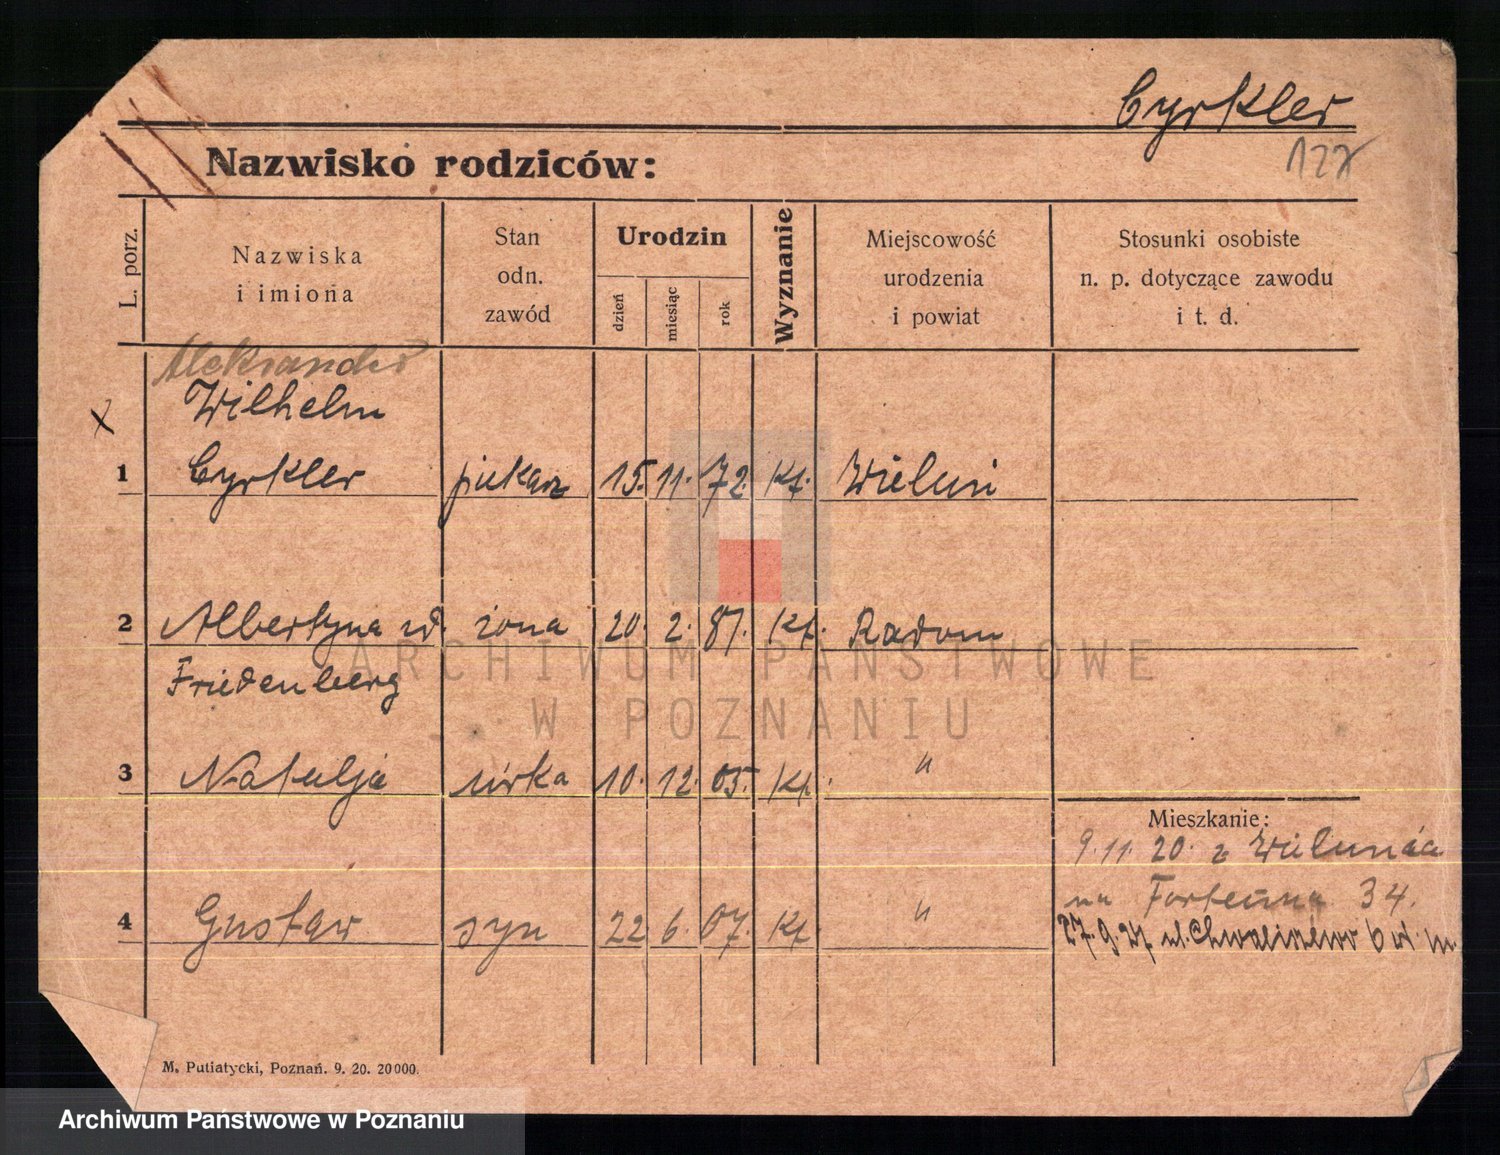 Cyrkler
Nazwisko rodziców:
L. porz.
Nazwiska
i imiona
Stan
odn.
zawód
Urodzin
dzień
miesiąc
rok
Wyznanie
Miejscowość
urodzenia
i powiat
Stosunki osobiste
n. p. dotyczące zawodu
i t. d.
Aleksander
Wilhelm
1 Cyrkler piekarz 15. 11. 72. Kt. Wieluń
2 Albertyna żona 20. 2. 81. Kt. Radom
Friedenberg
3 Natalja córka 10. 12. 05. Kt. "
Mieszkanie:
9.11.20. z Wielunia
na 34.
4 Gustaw syn 22 6. 07. Kt. "
27.9.21 ul. Chwaliszewo
M. Putiatycki, Poznań. 9. 20. 20 000.
ARCHIWUM PAŃSTWOWE
W POZNANIU
Archiwum Państwowe w Poznaniu